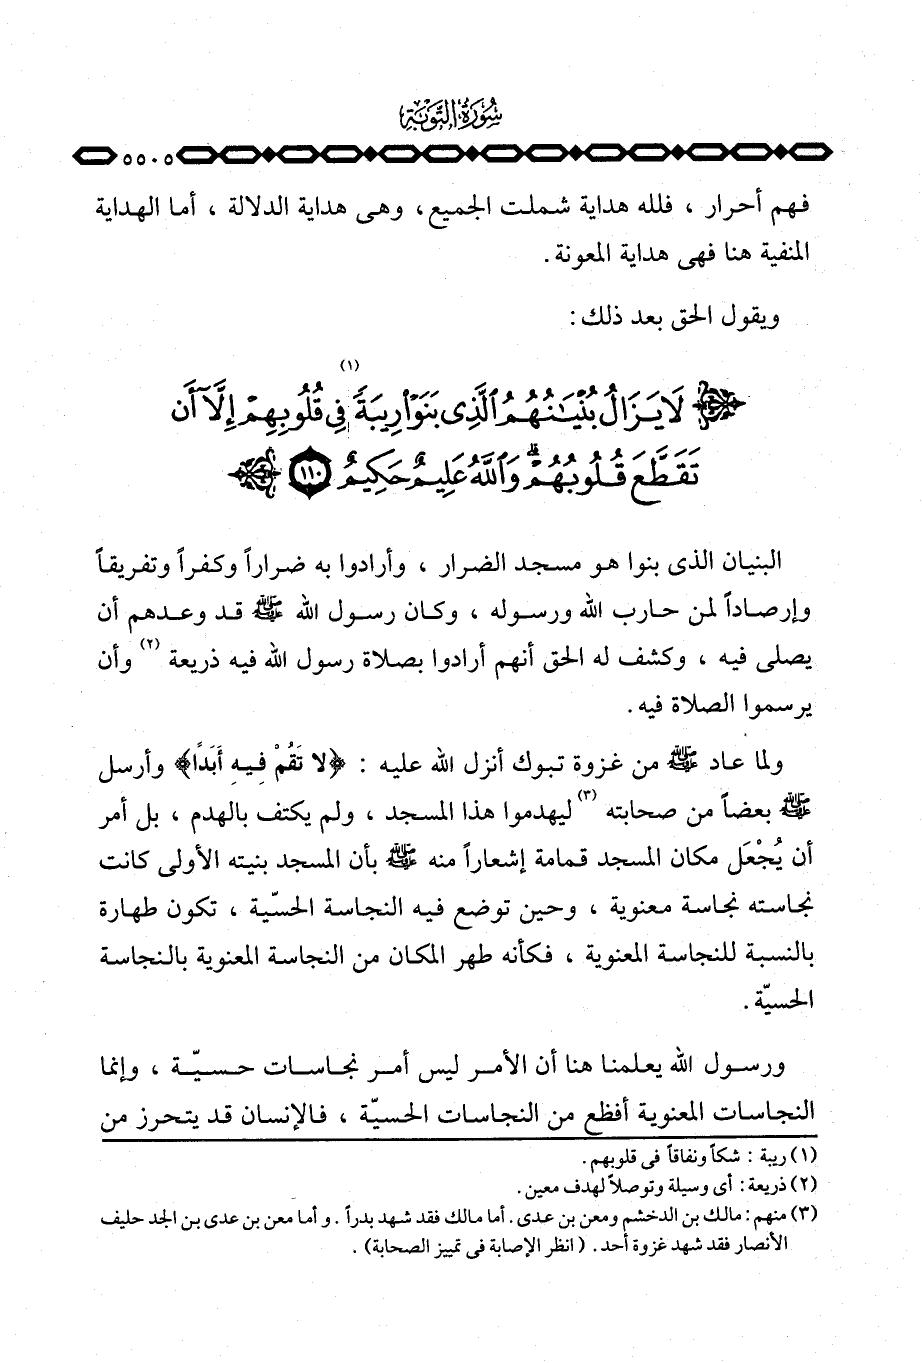 سُورَةُ التَّوْبَةِ
٥٥٠٥
فهم أحرار ، فلله هداية شملت الجميع، وهى هداية الدلالة ، أما الهداية
المنفية هنا فهى هداية المعونة .
ويقول الحق بعد ذلك :
(١)
﴿ لَا يَزَالُ بُنْيَـٰنُهُمُ ٱلَّذِى بَنَوْا۟ رِيبَةً فِى قُلُوبِهِمْ إِلَّآ أَن
تَقَطَّعَ قُلُوبُهُمْ ۗ وَٱللَّهُ عَلِيمٌ حَكِيمٌ ١١٠ ﴾
البنيان الذى بنوا هو مسجد الضرار ، وأرادوا به ضراراً وكفراً وتفريقاً
وإرصاداً لمن حارب الله ورسوله ، وكان رسول الله ﷺ قد وعدهم أن
يصلى فيه ، وكشف له الحق أنهم أرادوا بصلاة رسول الله فيه ذريعة (٢) وأن
يرسموا الصلاة فيه .
ولما عاد ﷺ من غزوة تبوك أنزل الله عليه : ﴿لا تَقُمْ فِيهِ أَبَدًا﴾ وأرسل
ﷺ بعضاً من صحابته (٣) ليهدموا هذا المسجد ، ولم يكتف بالهدم ، بل أمر
أن يُجْعَل مكان المسجد قمامة إشعاراً منه ﷺ بأن المسجد بنيته الأولى كانت
نجاسته نجاسة معنوية ، وحين توضع فيه النجاسة الحسّية ، تكون طهارة
بالنسبة للنجاسة المعنوية ، فكأنه طهر المكان من النجاسة المعنوية بالنجاسة
الحسيّة .
ورسول الله يعلمنا هنا أن الأمر ليس أمر نجاسات حسيّة ، وإنما
النجاسات المعنوية أفظع من النجاسات الحسيّة ، فالإنسان قد يتحرز من
(١) ريبة : شكاً ونفاقاً فى قلوبهم .
(٢) ذريعة : أى وسيلة وتوصلاً لهدف معين .
(٣) منهم : مالك بن الدخشم ومعن بن عدى . أما مالك فقد شهد بدراً . و أما معن بن عدى بن الجد حليف
الأنصار فقد شهد غزوة أحد . ( انظر الإصابة فى تمييز الصحابة) .